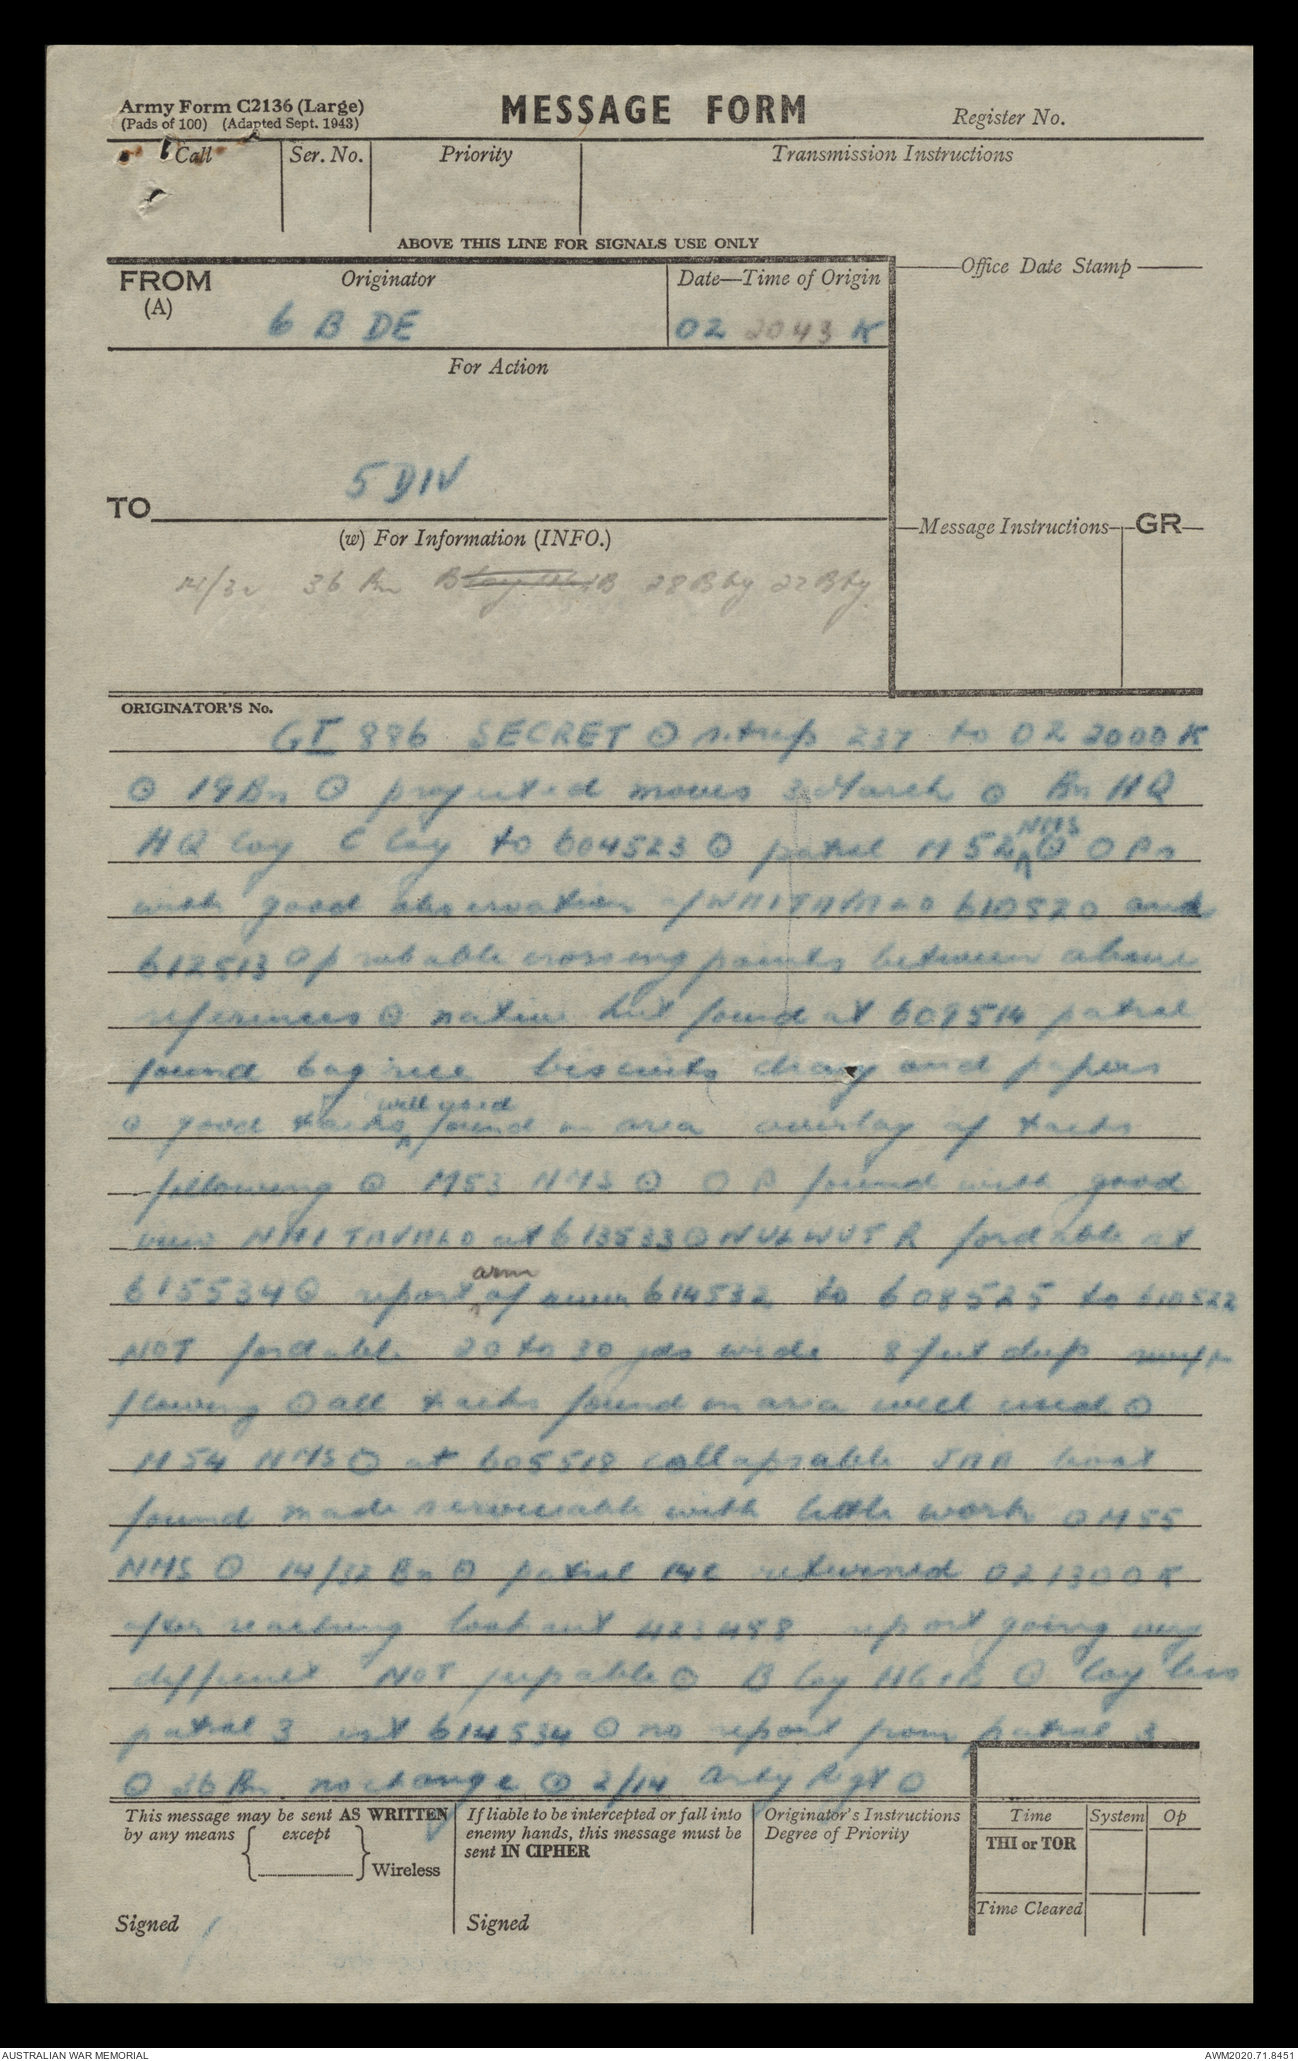 Army Form C2136 (Large)
(Pads of 100) (Adapted Sept. 1943)
MESSAGE FORM
Register No.
Call
Ser. No.
Priority
Transmission Instructions
ABOVE THIS LINE FOR SIGNALS USE ONLY
FROM
(A)
Originator
6 B DE
Date—Time of Origin
02 2043 K
Office Date Stamp
For Action
5 DIV
TO
(w) For Information (INFO.)
36 Bn 28 Bty 22 Bty
Message Instructions
GR
ORIGINATOR'S No.
GI 886 SECRET ⊙ sitrep 237 to 02 2000 K
⊙ 19 Bn ⊙ projected moves 3 March ⊙ Bn HQ
HQ Coy C Coy to 604523 ⊙ patrol M 52 NMS ⊙ O Ps
with good observation of WAITAVALO 610520 and
612513 ⊙ probable crossing points between above
references ⊙ native hut found at 609514 patrol
found bag rice biscuits diary and papers
⊙ good tracks well used found in area overlay of tracks
following ⊙ M53 NMS ⊙ O P found with good
view WAITAVALO at 613533 ⊙ WULWUT R fordable at
615534 ⊙ report arm of river 614532 to 608525 to 610522
NOT fordable 20 to 30 yds wide 8 feet deep
flowing ⊙ all tracks found in area well used ⊙
M 54 NMS ⊙ at 605518 collapsable JAP boat
found made serviceable with little work ⊙ M 55
NMS ⊙ 14/32 Bn ⊙ patrol 14C returned 021300K
after reaching lookout 423458 report going very
difficult NOT jeepable ⊙ B Coy ⊙ Coy less
patrol 3 est 614534 ⊙ no report from patrol 3
⊙ 36 Bn no change ⊙ 2/14 Arty Regt ⊙
This message may be sent AS WRITTEN
by any means except
Wireless
Signed
If liable to be intercepted or fall into
enemy hands, this message must be
sent IN CIPHER
Signed
Originator's Instructions
Degree of Priority
Time
System
Op
THI or TOR
Time Cleared
AUSTRALIAN WAR MEMORIAL
AWM2020.71.8451